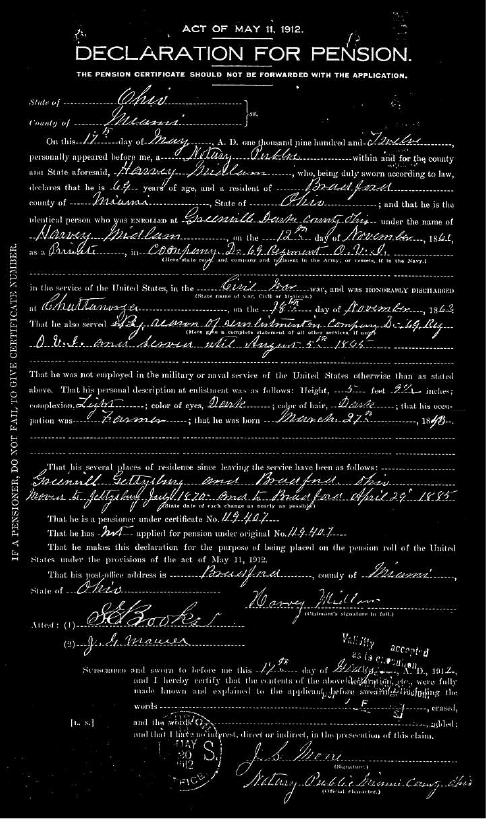 ACT OF MAY 11, 1912.
DECLARATION FOR PENSION.
THE PENSION CERTIFICATE SHOULD NOT BE FORWARDED WITH THE APPLICATION.
State of Ohio
County of Miami } ss.
On this 17th day of May, A. D. one thousand nine hundred and Twelve,
personally appeared before me, a Notary Public within and for the county
and State aforesaid, Harvey Midlam, who, being duly sworn according to law,
declares that he is 69 years of age, and a resident of Bradford
county of Miami, State of Ohio; and that he is the
identical person who was ENROLLED at Greenvill Dark County Ohio under the name of
Harvey Midlam, on the 12th day of November, 1861,
as a Private, in Company D. 69 Regiment O. V. I.
(Here state rank, and company and regiment in the Army, or vessels, if in the Navy.)
in the service of the United States, in the Civil War war, and was HONORABLY DISCHARGED
(State name of war, Civil or Mexican.)
at Chattanooga, on the day of November, 1863
That he also served by reason of reenlistment in Company D. 69 Reg
(Here give a complete statement of all other services, if any.)
O. V. I. and served until August 5th 1865
That he was not employed in the military or naval service of the United States otherwise than as stated
above. That his personal description at enlistment was as follows: Height, 5 feet inches;
complexion, Light; color of eyes, Dark; color of hair, Dark; that his occu-
pation was Farmer; that he was born March 27th, 18
That his several places of residence since leaving the service have been as follows:
Greenvill Gettysburg and Bradford Ohio
Moved to Gettysburg July 1870. and to Bradford April 29 1885
(State date of each change as nearly as possible)
That he is a pensioner under certificate No. 119.407
That he has not applied for pension under original No. 119.407
That he makes this declaration for the purpose of being placed on the pension roll of the United
States under the provisions of the act of May 11, 1912.
That his post-office address is Bradford, county of Miami,
State of Ohio
Harvey Midlam
(Claimant's signature in full.)
Attest: (1) S E Brooks
(2) J. G. Maurer
Validity accepted
as to execution
SUBSCRIBED and sworn to before me this 17th day of A. D., 1912,
and I hereby certify that the contents of the above declaration, etc., were fully
made known and explained to the applicant before swearing, including the
words, erased,
[L. S.] and the words, added;
and that I have no interest, direct or indirect, in the prosecution of this claim.
MAY
30
1912
J. S. Moni
(Signature.)
Notary Public Miami County Ohio
(Official character.)
IF A PENSIONER, DO NOT FAIL TO GIVE CERTIFICATE NUMBER.